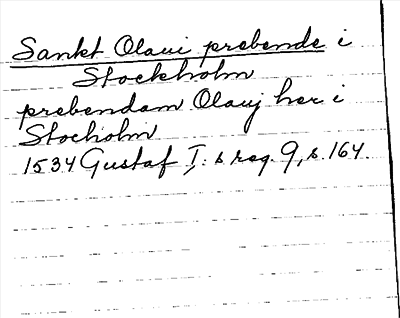 Sankt Olaui prebende i
Stockholm
prebendam Olauj her i
Stocholm
1534 Gustaf I: s reg. 9, s. 164.